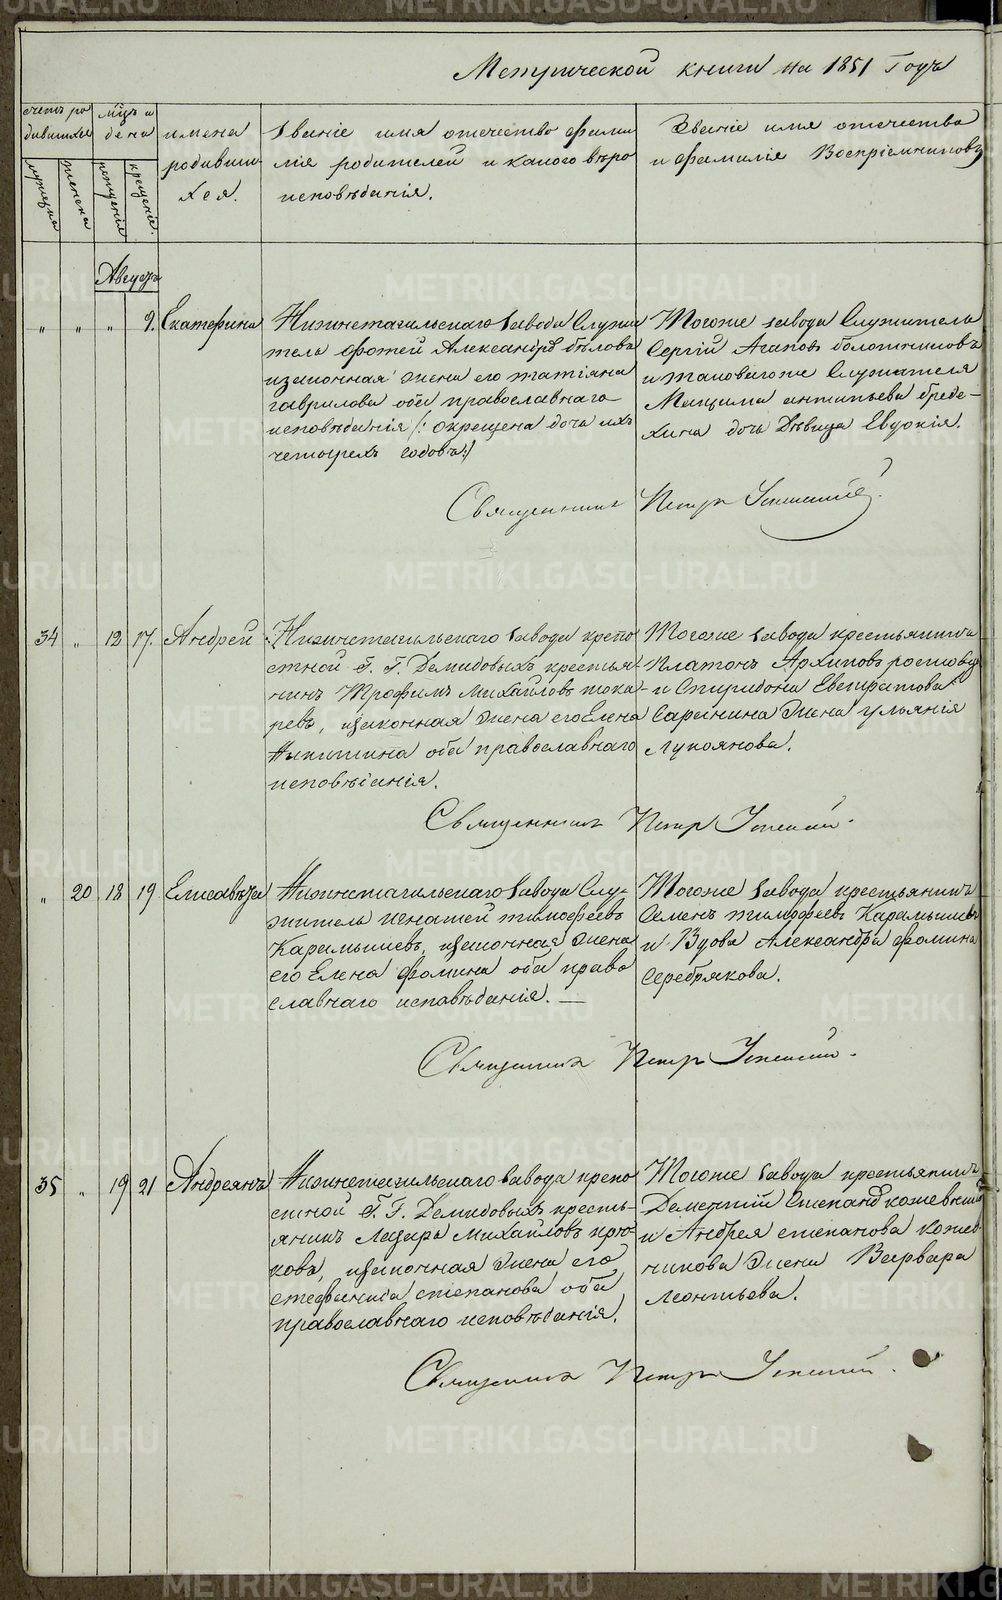 Метрической книги на 1851 Годъ
счетъ ро
дившихся
мужеска
женска
м̃цъ и
день
рожденія
крещенія.
имена
родивши
хся.
Званіе имя отечество фами
лія родителей и какого вѣро
исповѣданія.
Званіе имя отечество
и фамилія Воспріемниковъ
Августъ
" " " 9. Екатерина
Нижнетагильскаго завода Служи
тель Фотей Александровъ бѣловъ
изаконная жена его татіяна
гаврилова оба православнаго
исповѣданія /: окрещена дочь ихъ
четырехъ годовъ :/
Тогоже завода Служитель
Сергій Агаповъ болотниковъ
и таковагоже Служителя
Максима антипьева бреде-
хина дочь Дѣвица Евдокія.
Священникъ Петръ
34 " 12 17. Андрей
Нижнетагильскаго завода крепо
стной Г. Г. Демидовыхъ крестья-
нинъ Трофимъ Михайловъ тока-
ревъ, изаконная жена его Елена
Никитина оба православнаго
исповѣданія.
Тогоже завода крестьянинъ
Платонъ Архиповъ
и Спиридона Евстратова
Сарѣнина жена ульянія
Лукоянова.
Священникъ Петръ
" 20 18 19 Елисавѣта
Нижнетагильскаго завода Слу-
житель игнатей тимофеевъ
Карамышевъ, изаконная жена
его Елена Фомина оба право
славнаго исповѣданія.
Тогоже завода крестьянинъ
Семенъ тимофеевъ Карамышевъ
и Вдова Александра Фомина
Серебрякова.
Священникъ Петръ
35 " 19 21 Андреянъ
Нижнетагильскаго завода крепо
стной Г. Г. Демидовыхъ кресть-
янинъ Лазарь Михайловъ крю-
ковъ, изаконная жена его
стефанида степанова оба
православнаго исповѣданія.
Тогоже завода крестьянинъ
Дементій Степановъ кожевник
и Андрея степанова кожев
никова жена Варвара
Леонтьева.
Священникъ Петръ
METRIKI.GASO-URAL.RU